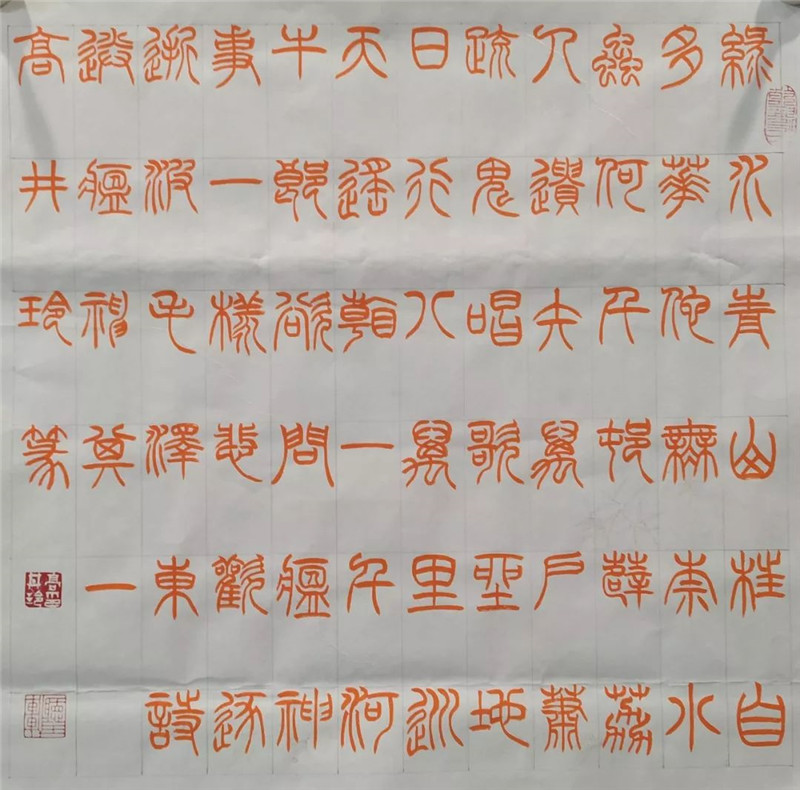 綠水青山枉自
多華佗無奈小
蟲何千邨薜荔
人遺矢萬戶蕭
疏鬼唱歌坐地
日行八萬里巡
天遙看一千河
牛郎欲問瘟神
事一樣悲歡逐
逝波毛澤東詩
送瘟神其一
高井玲篆